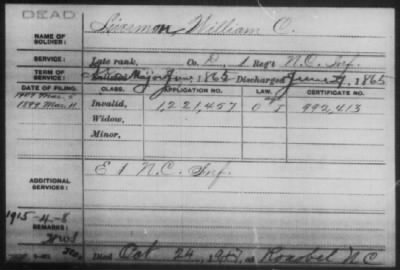 DEAD
NAME OF SOLDIER: Liverman, William C.
SERVICE: Late rank, Co. D, 1 Reg't N.C. Inf.
TERM OF SERVICE: Enlisted Jan, 1865 Discharged June 27, 1865
DATE OF FILING. CLASS. APPLICATION NO. LAW. CERTIFICATE NO.
1899 Mar. 11 Invalid, 1,221,457 992,413
Widow,
Minor,
ADDITIONAL SERVICES: E 1 N.C. Inf.
1915-4-8
REMARKS:
Died Oct 24, 1917, at Roxobel N C